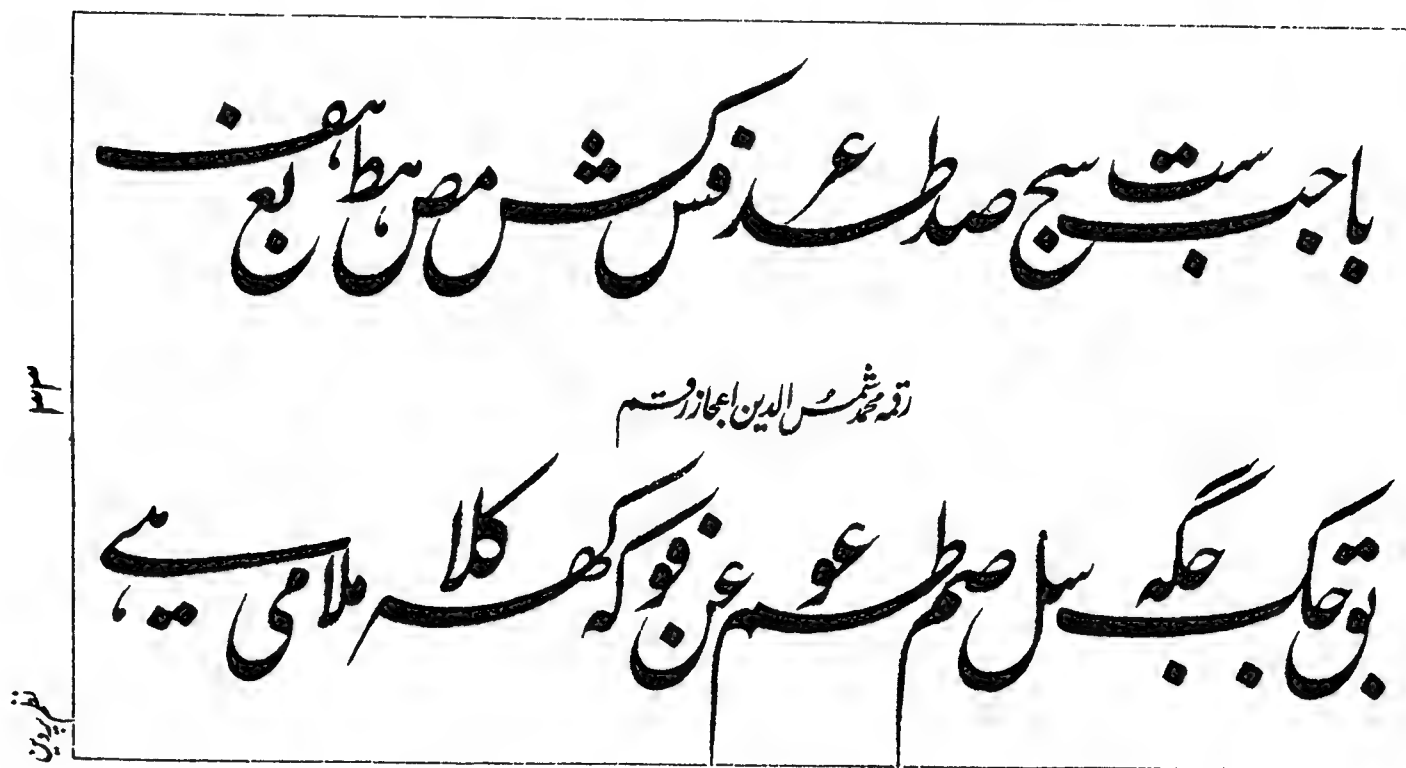 با جب ست سج صد طر عر عد فس کش مص هط هف بع
رقمہ محمد شمس الدین اعجاز رقم
بق جا کب جگہ سل صم طم عو عن فو کہ کھر کلا ملا می ہیے
۳۳
نظر پروین